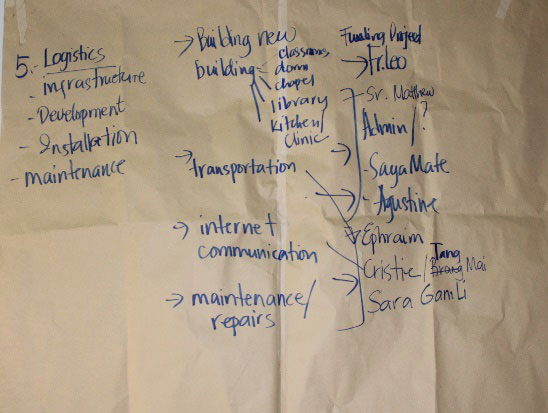 5.- Logistics
- Infrastructure
- Development
- Installation
- maintenance
→ Building new
building - classrooms
dorm
chapel
library
kitchen/
clinic
→ transportation
→ internet
communication
→ maintenance/
repairs
Funding Project
→ Fr. Leo
- Sr. Matthew
Admin/?
- SayaMate
- Agustine
Ephraim
Cristie/Tang Mai
Sara GamLi